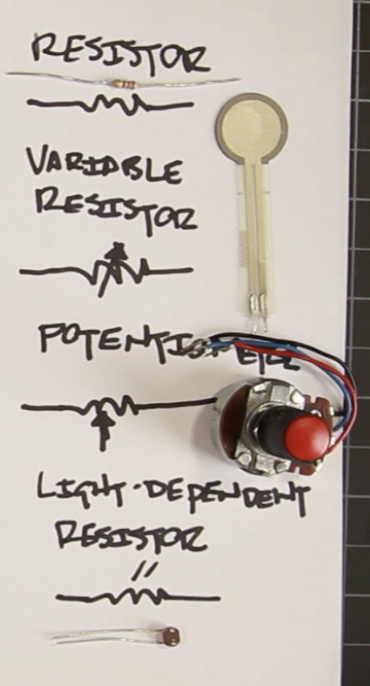 RESISTOR
VARIABLE
RESISTOR
POTENTIOMETER
LIGHT-DEPENDENT
RESISTOR